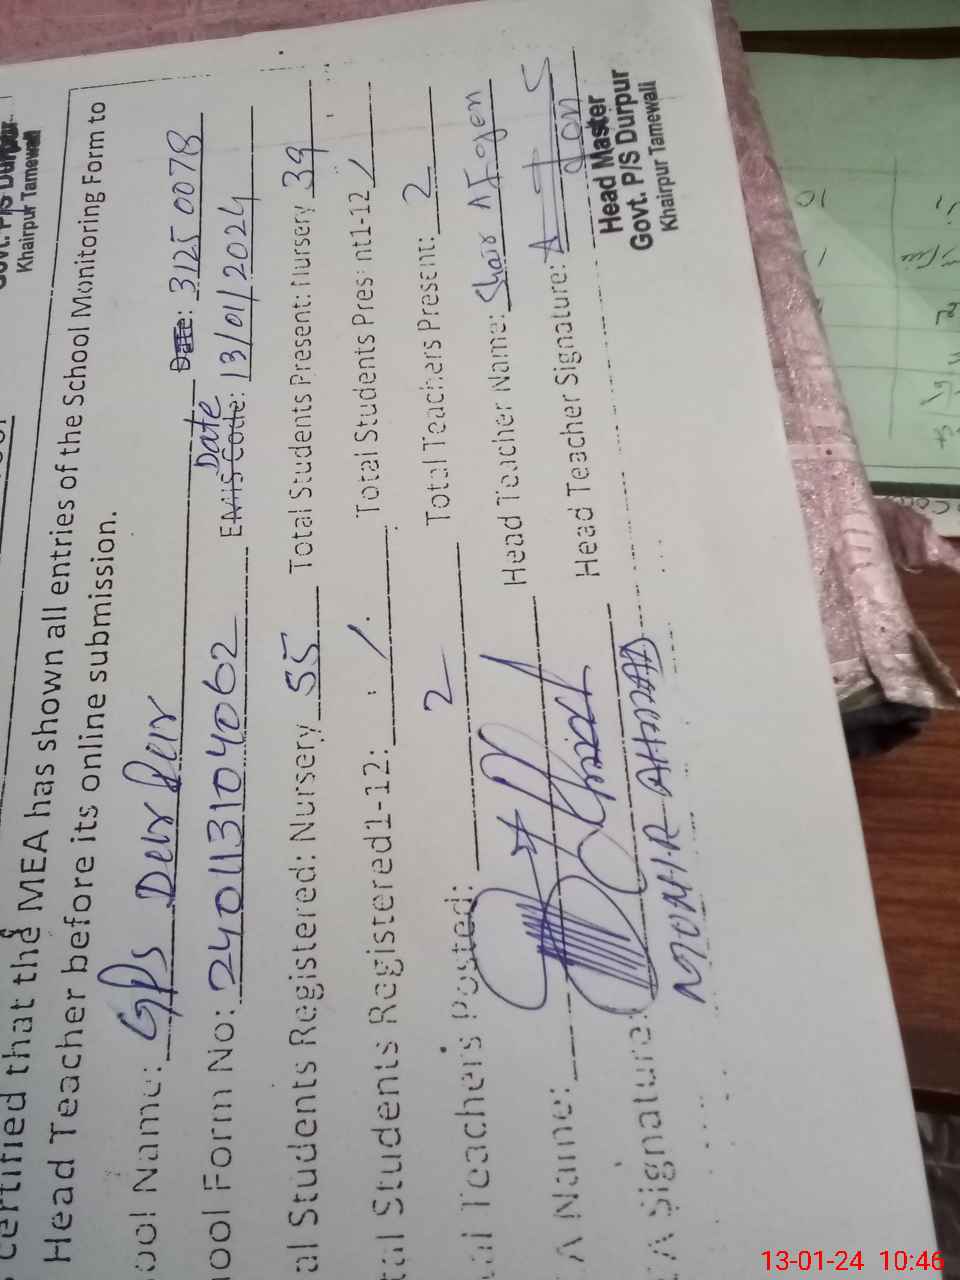 Govt. P/S Durpur
Khairpur Tamewali
certified that the MEA has shown all entries of the School Monitoring Form to
Head Teacher before its online submission.
ool Name: GPS Durpur Date: 31250078
ool Form No: 240113104062 EMIS Code: Date 13/01/2024
al Students Registered: Nursery 55 Total Students Present: Nursery 39
tal Students Registered1-12: / Total Students Present1-12 /
al Teachers Posted: 2 Total Teachers Present: 2
A Name: Head Teacher Name:
A Signature: Head Teacher Signature:
MONIR AHMAD
Head Master
Govt. P/S Durpur
Khairpur Tamewali
13-01-24 10:46